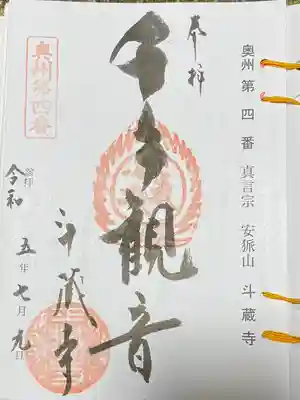 奥州 第 四 番 真言宗 安狐山 斗蔵寺
奉拝
千手観音
斗蔵寺
奥州第四番
令和五年七月九日